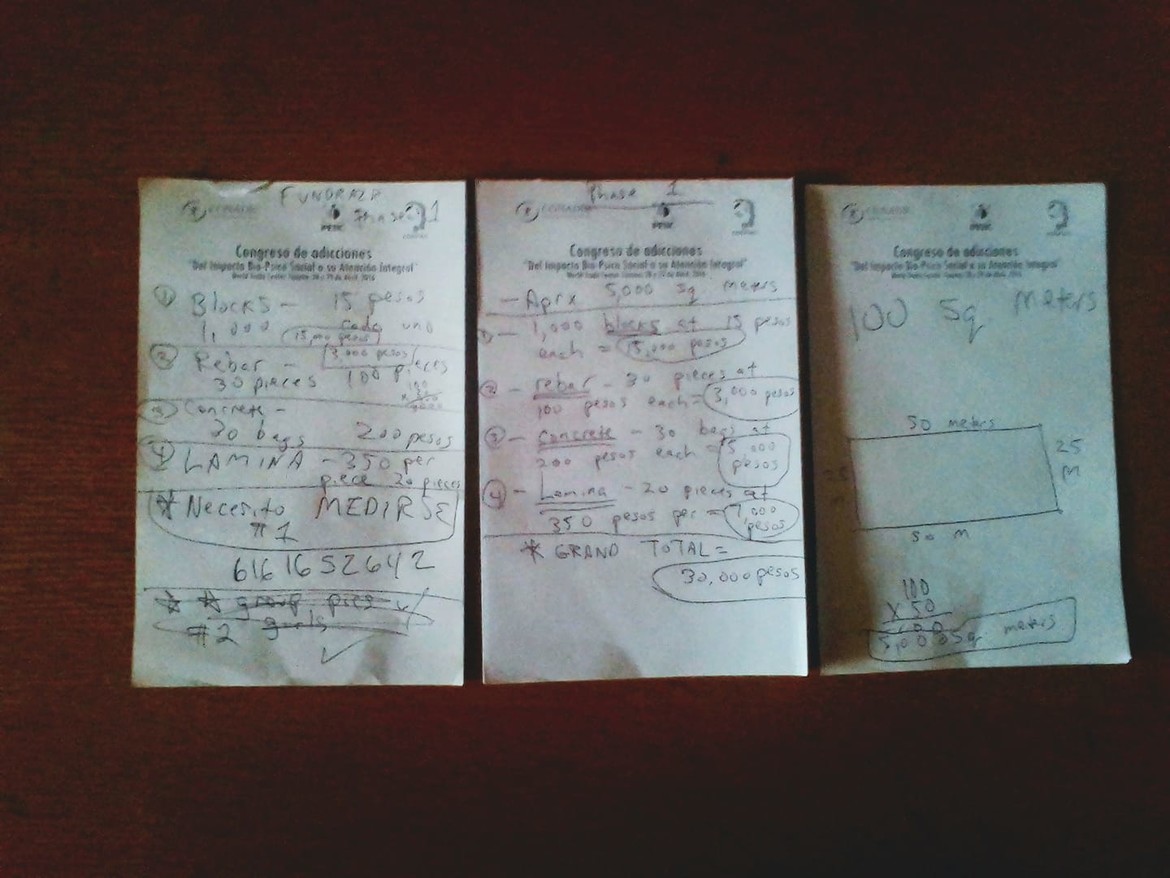 FUNDRAZR
Phase 1
Congreso de adicciones
"Del Impacto Bio-Psico Social a su Atención Integral"
① Blocks - 15 pesos
1,000 cada uno
(15,000 pesos)
Rebar - 3,000 pesos
30 pieces 100 pieces
③ Concrete -
30 bags 200 pesos
④ LAMINA - 350 per
piece 20 pieces
* Necesito MEDIRSE
#1
6161652642
* * group pics
#2 girls
Phase 1
Congreso de adicciones
"Del Impacto Bio-Psico Social a su Atención Integral"
- Aprx 5,000 sq meters
① - 1,000 blocks at 15 pesos
each = 15,000 pesos
② - rebar - 30 pieces at
100 pesos each = 3,000 pesos
③ - concrete - 30 bags at
200 pesos each = 5,000
pesos
④ - Lamina - 20 pieces at
350 pesos per = 7,000
pesos
* GRAND TOTAL =
30,000 pesos
Congreso de adicciones
"Del Impacto Bio-Psico Social a su Atención Integral"
100 Sq Meters
50 meters
25
M
50 M
100
X 50
5,000 Sq meters